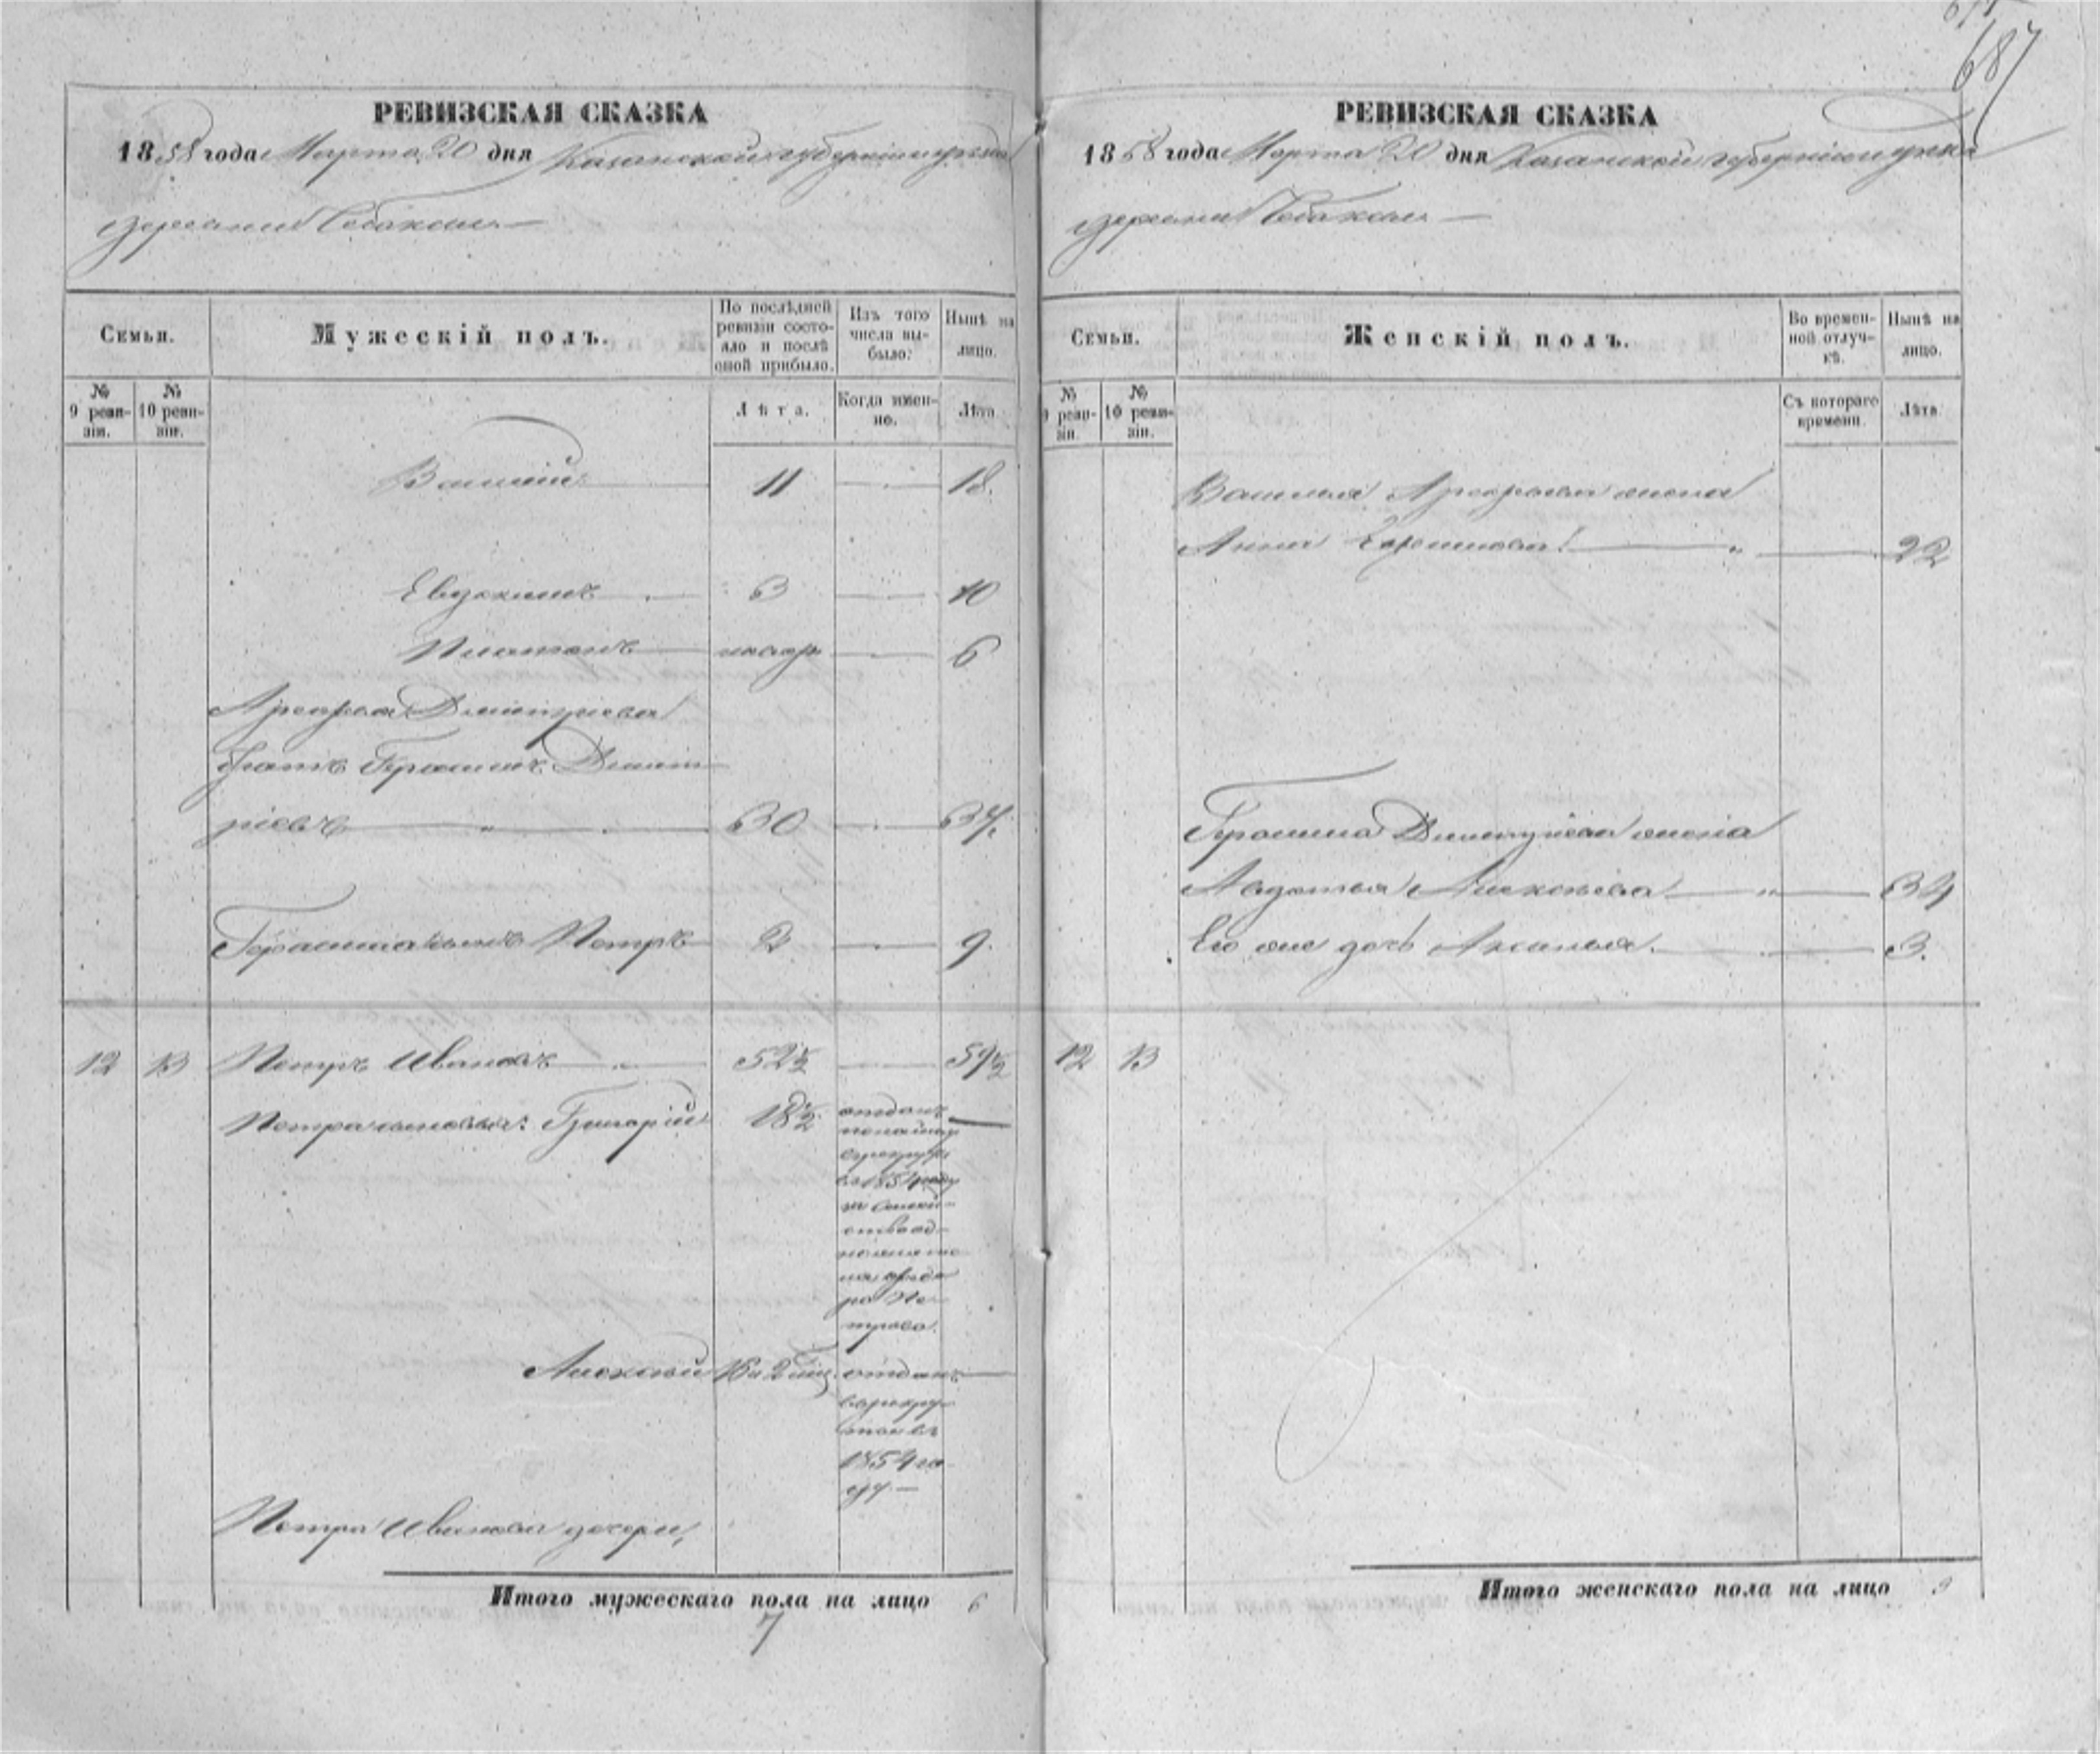 687
РЕВИЗСКАЯ СКАЗКА
1858 года Марта 20 дня Казанской губерніи и уезда
деревни Собакина
Семьи.
Мужескій полъ.
По послѣдней ревизіи состояло и послѣ оной прибыло.
Изъ того числа выбыло:
Нынѣ на лицо.
№ 9 ревизіи.
№ 10 ревизіи.
Лѣта.
Когда именно.
Лѣта.
Василій 11 18.
Евдокимъ 3 10
Платонъ 6
Дмитріева
братъ Герасимъ Дмит
ріевъ " 30 37.
Герасима сынъ Петръ 2 9.
12 13 Петръ Ивановъ 52½ 59½
Петра сыновья: Григорій 18½
отданъ
въ 1854 году
Пе
трова.
Алексѣй отданъ
въ рекру
ты въ
1854 го
ду.
Петра Иванова дочери,
Итого мужескаго пола на лицо 6
7
РЕВИЗСКАЯ СКАЗКА
1858 года Марта 20 дня Казанской губерніи и уезда
деревни Собакина
Семьи.
Женскій полъ.
Во временной отлучкѣ.
Нынѣ на лицо.
№ 9 ревизіи.
№ 10 ревизіи.
Съ котораго времени.
Лѣта.
Василья жена
Анна " 22
Герасима Дмитріева жена
Авдотья Алексѣева " 34
Его же дочь Аксинья. 3.
12 13
Итого женскаго пола на лицо 3